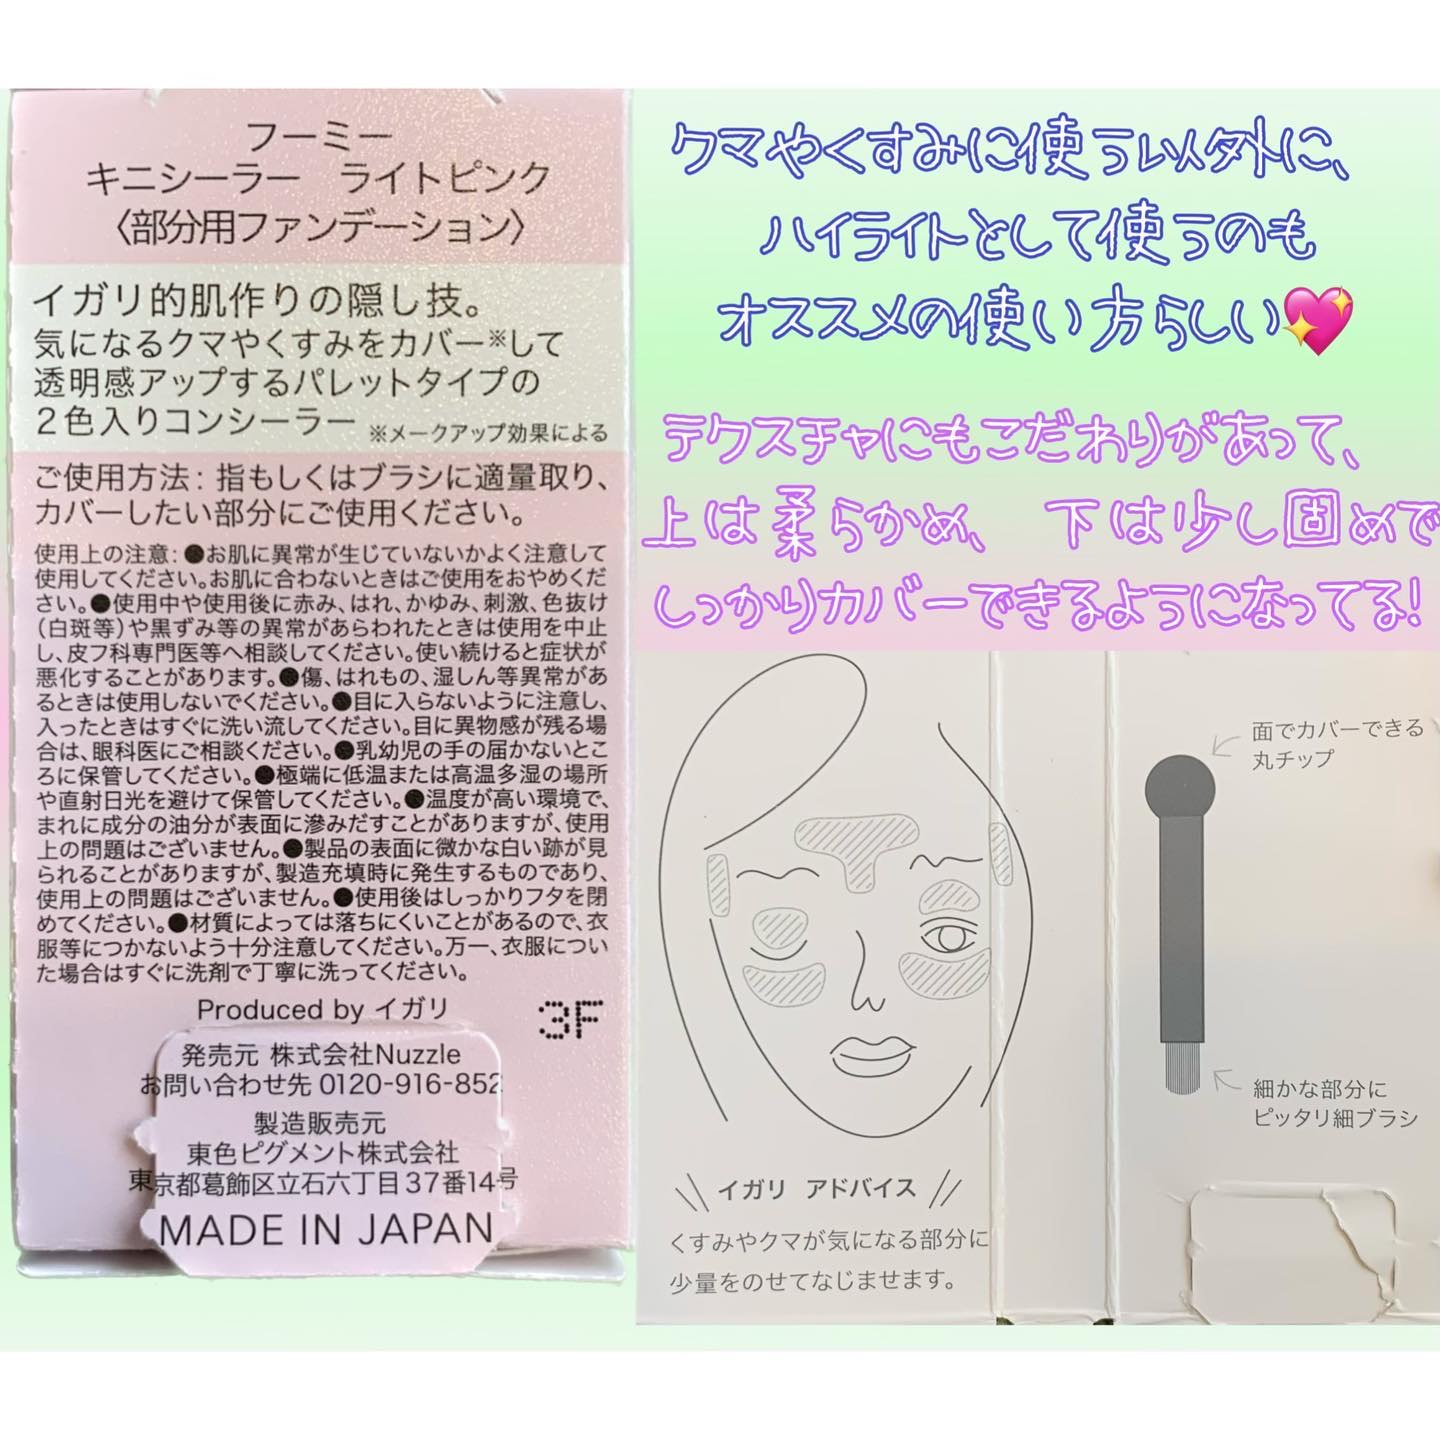 フーミー
キニシーラー ライトピンク
〈部分用ファンデーション〉
イガリ的肌作りの隠し技。
気になるクマやくすみをカバー※して
透明感アップするパレットタイプの
2色入りコンシーラー ※メークアップ効果による
ご使用方法：指もしくはブラシに適量取り、
カバーしたい部分にご使用ください。
使用上の注意：●お肌に異常が生じていないかよく注意して
使用してください。お肌に合わないときはご使用をおやめくだ
さい。●使用中や使用後に赤み、はれ、かゆみ、刺激、色抜け
（白斑等）や黒ずみ等の異常があらわれたときは使用を中止
し、皮フ科専門医等へ相談してください。使い続けると症状が
悪化することがあります。●傷、はれもの、湿しん等異常があ
るときは使用しないでください。●目に入らないように注意し、
入ったときはすぐに洗い流してください。目に異物感が残る場
合は、眼科医にご相談ください。●乳幼児の手の届かないとこ
ろに保管してください。●極端に低温または高温多湿の場所
や直射日光を避けて保管してください。●温度が高い環境で、
まれに成分の油分が表面に滲みだすことがありますが、使用
上の問題はございません。●製品の表面に微かな白い跡が見
られることがありますが、製造充填時に発生するものであり、
使用上の問題はございません。●使用後はしっかりフタを閉
めてください。●材質によっては落ちにくいことがあるので、衣
服等につかないよう十分注意してください。万一、衣服につい
た場合はすぐに洗剤で丁寧に洗ってください。
Produced by イガリ
3F
発売元 株式会社Nuzzle
お問い合わせ先 0120-916-852
製造販売元
東色ピグメント株式会社
東京都葛飾区立石六丁目37番14号
MADE IN JAPAN
クマやくすみに使う以外に、
ハイライトとして使うのも
オススメの使い方らしい💖
テクスチャにもこだわりがあって、
上は柔らかめ、 下は少し固めで
しっかりカバーできるようになってる!
面でカバーできる
丸チップ
細かな部分に
ピッタリ細ブラシ
\\ イガリ アドバイス //
くすみやクマが気になる部分に
少量をのせてなじませます。